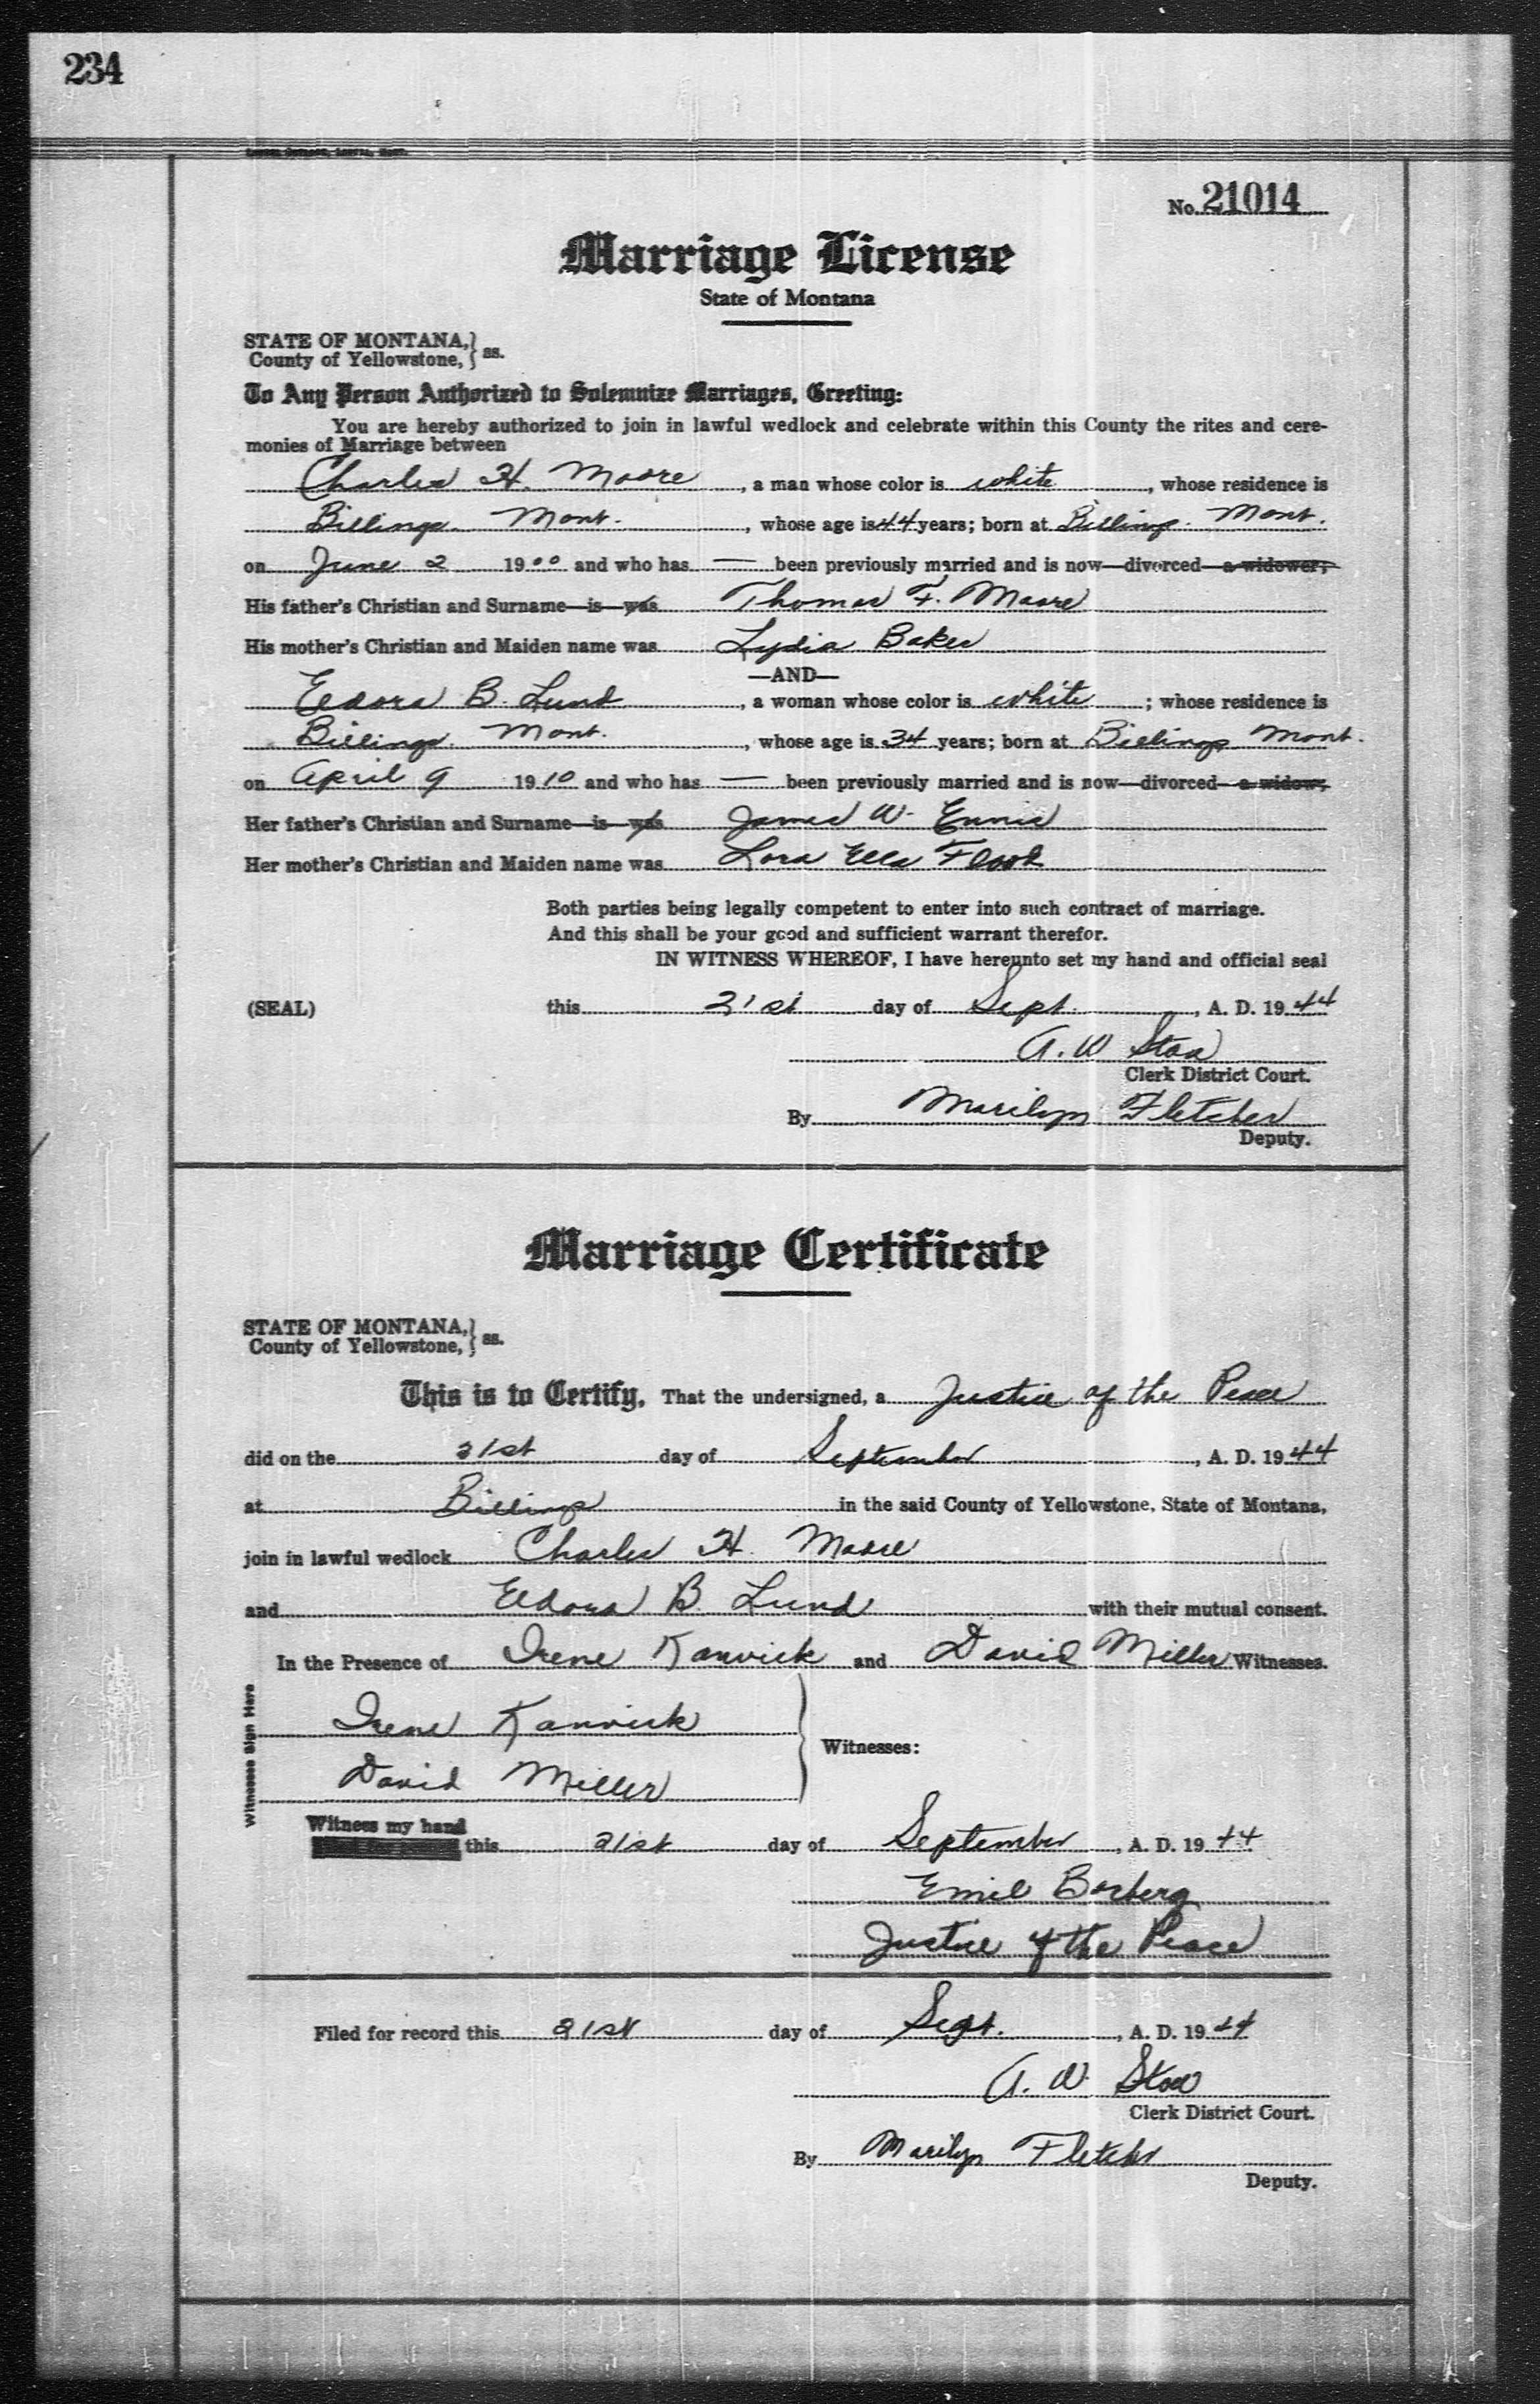 234
No. 21014
Marriage License
State of Montana
STATE OF MONTANA,
County of Yellowstone, } ss.
To Any Person Authorized to Solemnize Marriages, Greeting:
You are hereby authorized to join in lawful wedlock and celebrate within this County the rites and cere-
monies of Marriage between
Charles H. Moore, a man whose color is white, whose residence is
Billings. Mont., whose age is 44 years; born at Billings. Mont.
on June 2 1900 and who has — been previously married and is now—divorced—a widower;
His father's Christian and Surname—is—was Thomas F. Moore
His mother's Christian and Maiden name was Lydia Baker
—AND—
Eldora B. Lund, a woman whose color is white; whose residence is
Billings. Mont., whose age is 34 years; born at Billings Mont.
on April 9 1910 and who has — been previously married and is now—divorced—a widow;
Her father's Christian and Surname—is—was James W. Ennis
Her mother's Christian and Maiden name was Lora Ella Flook
Both parties being legally competent to enter into such contract of marriage.
And this shall be your good and sufficient warrant therefor.
IN WITNESS WHEREOF, I have hereunto set my hand and official seal
(SEAL) this 21st day of Sept., A. D. 1944
A. W.
Clerk District Court.
By Marilyn Fletcher
Deputy.
Marriage Certificate
STATE OF MONTANA,
County of Yellowstone, } ss.
This is to Certify, That the undersigned, a Justice of the Peace
did on the 21st day of September, A. D. 1944
at Billings in the said County of Yellowstone, State of Montana,
join in lawful wedlock Charles H. Moore
and Eldora B. Lund with their mutual consent.
In the Presence of Irene Kanvick and David Miller Witnesses.
Witnesses Sign Here
Irene Kanvick
Witnesses:
David Miller
Witness my hand
this 21st day of September, A. D. 1944
Emil Borberg
Justice of the Peace
Filed for record this 21st day of Sept., A. D. 1944
A. W.
Clerk District Court.
By Marilyn Fletcher
Deputy.